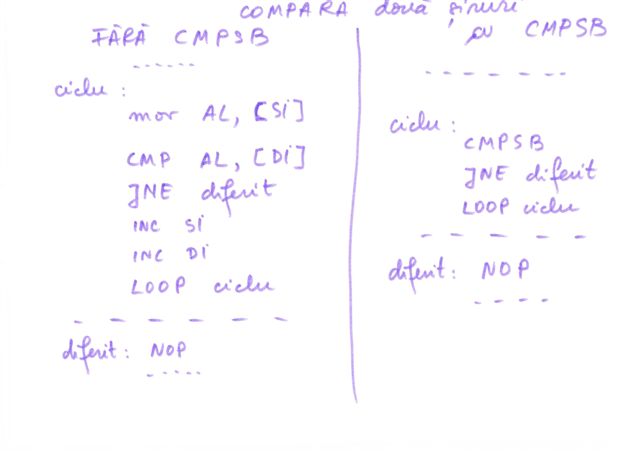 COMPARA două șiruri
FĂRĂ CMPSB
------
ciclu :
mov AL, [SI]
CMP AL, [DI]
JNE diferit
INC SI
INC DI
LOOP ciclu
- - - - - -
diferit : NOP
-----
cu CMPSB
- - - - - -
ciclu :
CMPSB
JNE diferit
LOOP ciclu
- - - - -
diferit : NOP
- - - -